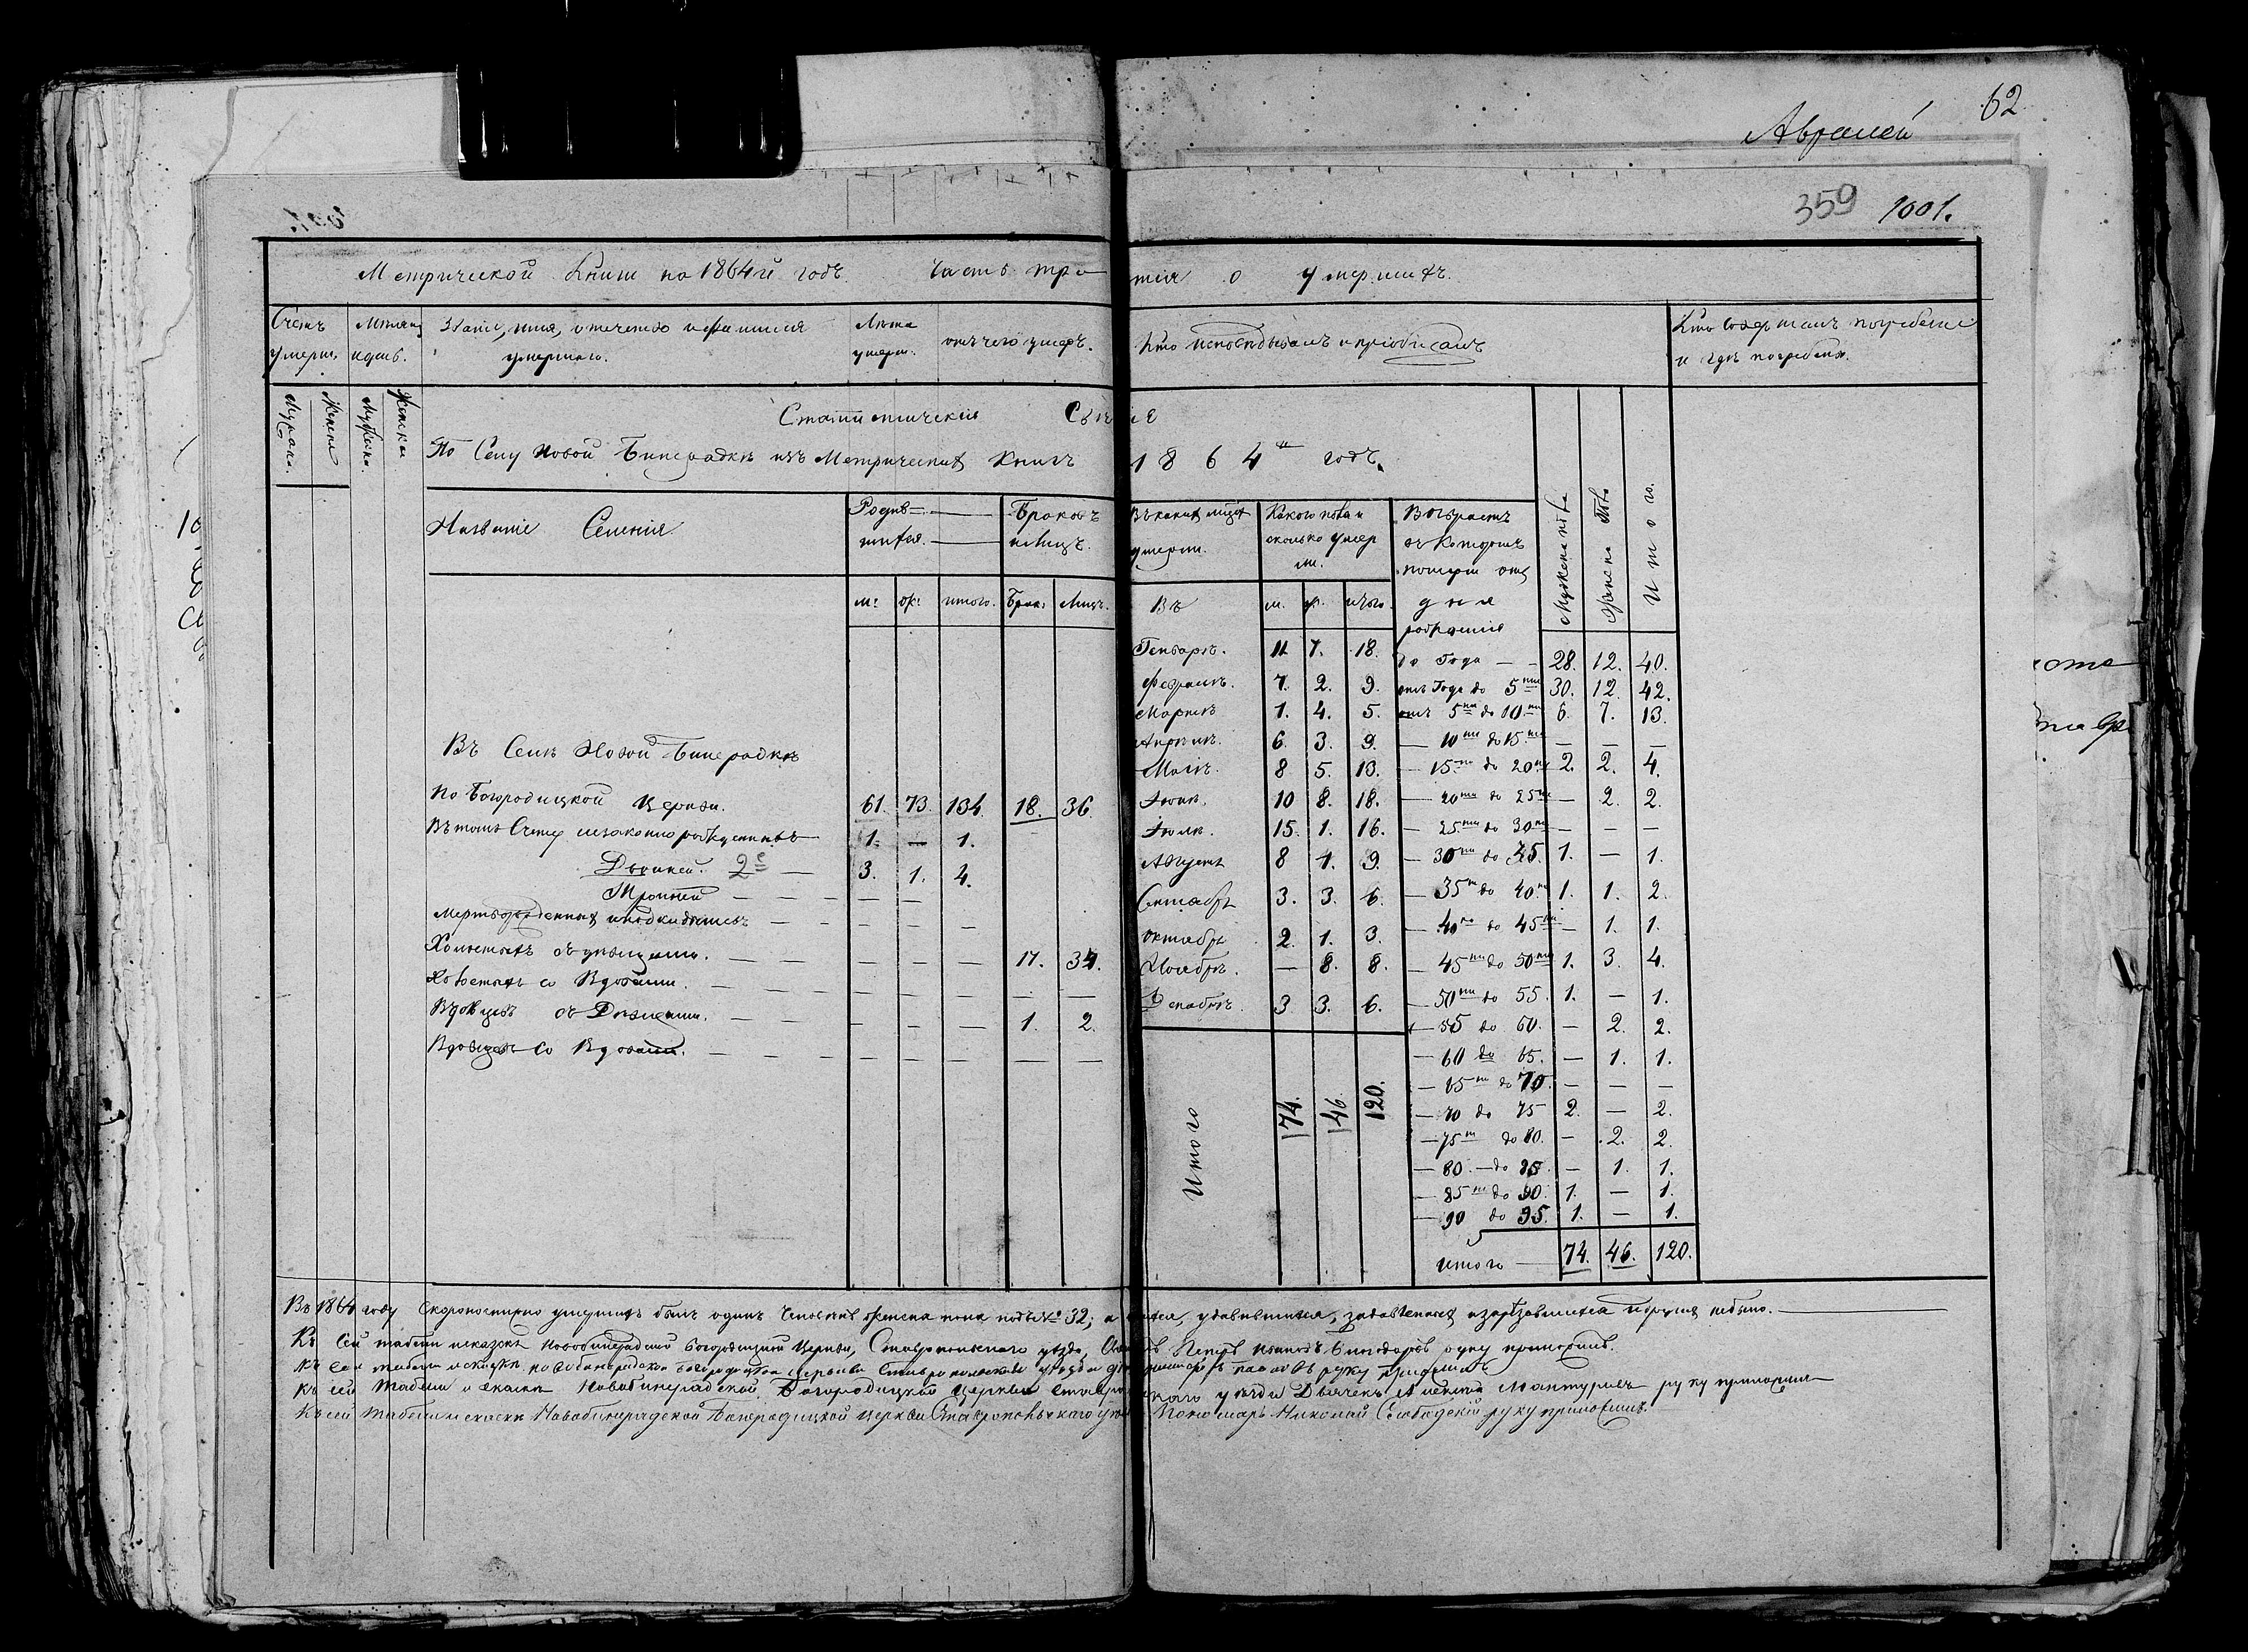 62
359 1001.
Метрической Книги на 1864й годъ. Часть третiя о умершихъ.
Счетъ умерш.
Мѣсяцъ и день.
Званiе, имя, отчество и фамилiя умершаго.
Лѣта умерш.
отъ чего умеръ.
Кто исповѣдывалъ и прiобщалъ
Кто совершалъ погребенiе и гдѣ погребены.
Мужска. Женска Мужска. Женска
Статистическiя Свѣденiя
По Селу Новой Бинерадкѣ изъ Метрическихъ Книгъ 1864й годъ.
Названiе Селенiя.
Родившихся.
Браковъ и лицъ.
Въ какихъ мѣсяц. умерли.
Какого пола и сколько умерли.
Возрастъ въ которомъ померли отъ дня рожденiя
Мужеска пола
Женска пола
Итого.
м: ж: итого. Брак: Лицъ.
Въ м. ж. итого.
Въ Селѣ Новой Бинерадкѣ
по Богородицкой Церкви. 61. 73. 134. 18. 36.
Въ томъ Счету незаконнорожденныхъ 1. — 1.
Двойней. 2е — 3. 1. 4.
Тройней — — — — —
Мертворожденныхъ и подкидышевъ — — — — —
Холостыхъ съ дѣвицами. — — — — — 17. 34.
Холостыхъ со Вдовами. — — — — — — — —
Вдовцевъ съ Дѣвицами. — — — — — 1. 2.
Вдовцевъ со Вдовами. — — — — — — — —
Генварѣ. 11 7. 18.
Февралѣ. 7. 2. 9.
Мартѣ 1. 4. 5.
Апрѣлѣ. 6. 3. 9.
Маiѣ. 8 5. 13.
Iюнѣ. 10 8. 18.
Iюлѣ. 15. 1. 16.
Августѣ 8 1. 9.
Сентябрѣ 3. 3. 6.
Октябрѣ 2. 1. 3.
Ноябрѣ. — 8. 8.
Декабрѣ. 3 3. 6.
Итого 74. 46. 120.
до Года — — 28. 12. 40.
отъ Года до 5ти 30. 12. 42.
отъ 5ти до 10ти 6. 7. 13.
— 10ти до 15.ти — — —
— 15ти до 20ти 2. 2. 4.
— 20ти до 25ти — 2. 2.
— 25ти до 30ти — — —
— 30ти до 35. 1. — 1.
— 35ти до 40.ти 1. 1. 2.
— 40ка до 45ти — 1. 1.
— 45ти до 50ти 1. 3. 4.
— 50ти до 55. 1. — 1.
— 55 до 60. — 2. 2.
— 60 до 65. — 1. 1.
— 65ти до 70. — — —
— 70 до 75 2. — 2.
— 75ти до 80. — 2. 2.
— 80. — до 85. — 1. 1.
— 85ти до 90. 1. — 1.
— 90 до 95. 1. — 1.
итого — 74. 46. 120.
Въ 1864 году Скоропостижно умершихъ былъ одинъ Человѣкъ женска пола подъ № 32; а удавившихся, задавленныхъ и зарѣзавшихся и прочихъ небыло.
Къ Сей табели и сказкѣ Новобинерадской Богородицкой Церкви, Ставропольскаго уѣзда, Петръ Ивановъ Благодаровъ руку приложилъ.
Къ сей табели и сказкѣ Новобинерадской Богородицкой церкви Ставропольскаго уѣзда руку приложилъ
Къ сей табели и сказкѣ Новобинерадской Богородицкой церкви Ставропольскаго уѣзда Дьячекъ Алексей Мантуровъ руку приложилъ
Къ сей табели и сказки Новобинерадской Богородицкой церкви Ставропольскаго уѣзда Пономарь Николай Слободскiй руку приложилъ.